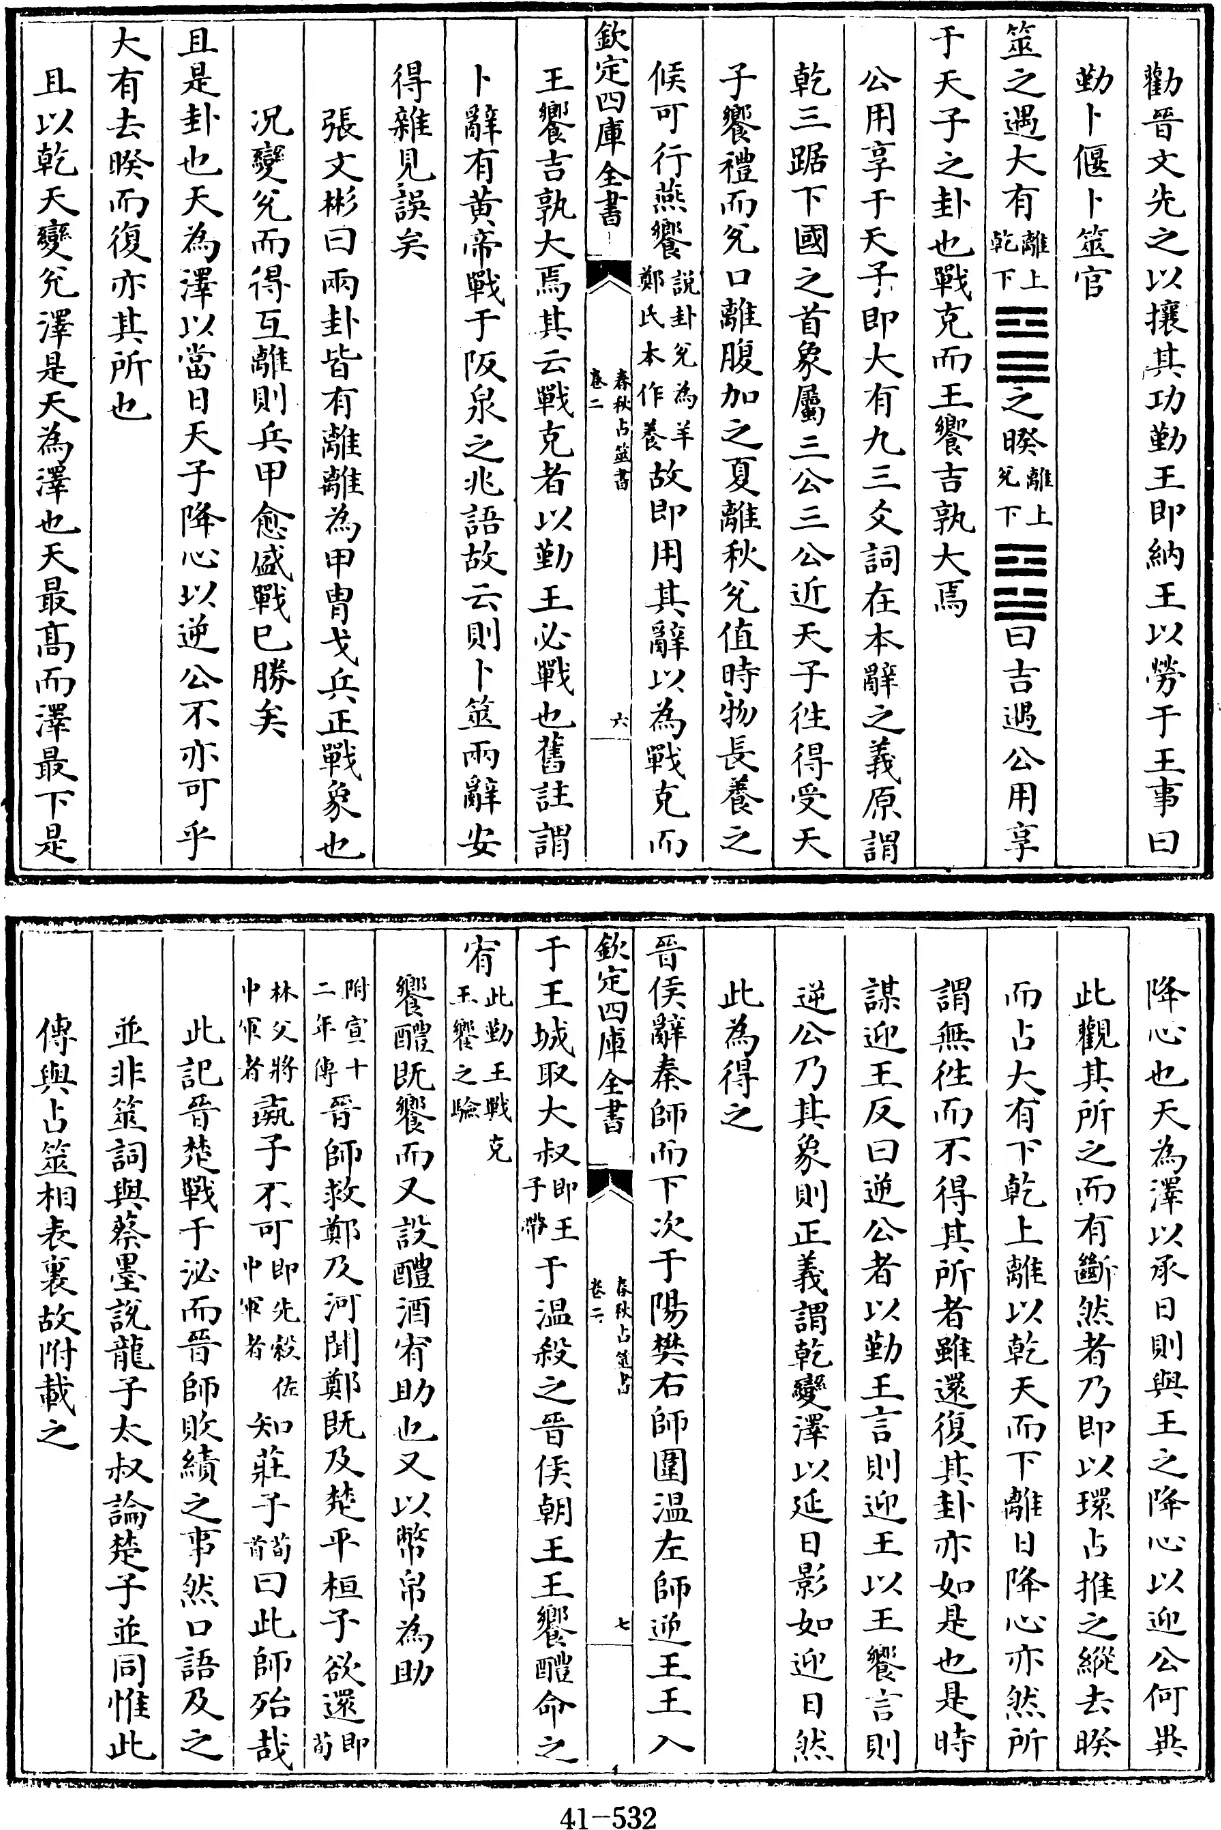 勸晉文先之以攘其功勤王即納王以勞于王事曰
勤卜偃卜筮官
筮之遇大有離上乾下䷍之睽離上兌下䷥曰吉遇公用享
于天子之卦也戰克而王饗吉孰大焉
公用享于天子即大有九三爻詞在本辭之義原謂
乾三踞下國之首象屬三公三公近天子徃得受天
子饗禮而兌口離腹加之夏離秋兌值時物長養之
候可行燕饗說卦兌為羊鄭氏本作養故即用其辭以為戰克而
欽定四庫全書
春秋占筮書
卷二
六
王饗吉孰大焉其云戰克者以勤王必戰也舊註謂
卜辭有黄帝戰于阪泉之兆語故云則卜筮兩辭安
得雜見誤矣
張文彬曰兩卦皆有離離為甲胄戈兵正戰象也
况變兌而得互離則兵甲愈盛戰已勝矣
且是卦也天為澤以當日天子降心以逆公不亦可乎
大有去睽而復亦其所也
且以乾天變兌澤是天為澤也天最高而澤最下是
降心也天為澤以承日則與王之降心以迎公何異
此觀其所之而有斷然者乃即以環占推之縱去睽
而占大有下乾上離以乾天而下離日降心亦然所
謂無徃而不得其所者雖還復其卦亦如是也是時
謀迎王反曰逆公者以勤王言則迎王以王饗言則
逆公乃其象則正義謂乾變澤以延日影如迎日然
此為得之
晉侯辭秦師而下次于陽樊右師圍温左師逆王王入
欽定四庫全書
春秋占筮書
卷二
七
于王城取大叔即王子帶于温殺之晉侯朝王王饗醴命之
宥此勤王戰克王饗之驗
饗醴既饗而又設醴酒宥助也又以幣帛為助
附宣十二年傳晉師救鄭及河聞鄭既及楚平桓子欲還即荀
林父將中軍者彘子不可即先縠佐中軍者知莊子荀首曰此師殆哉
此記晉楚戰于泌而晉師敗績之事然口語及之
並非筮詞與蔡墨說龍子太叔論楚子並同惟此
傳與占筮相表裏故附載之
41-532